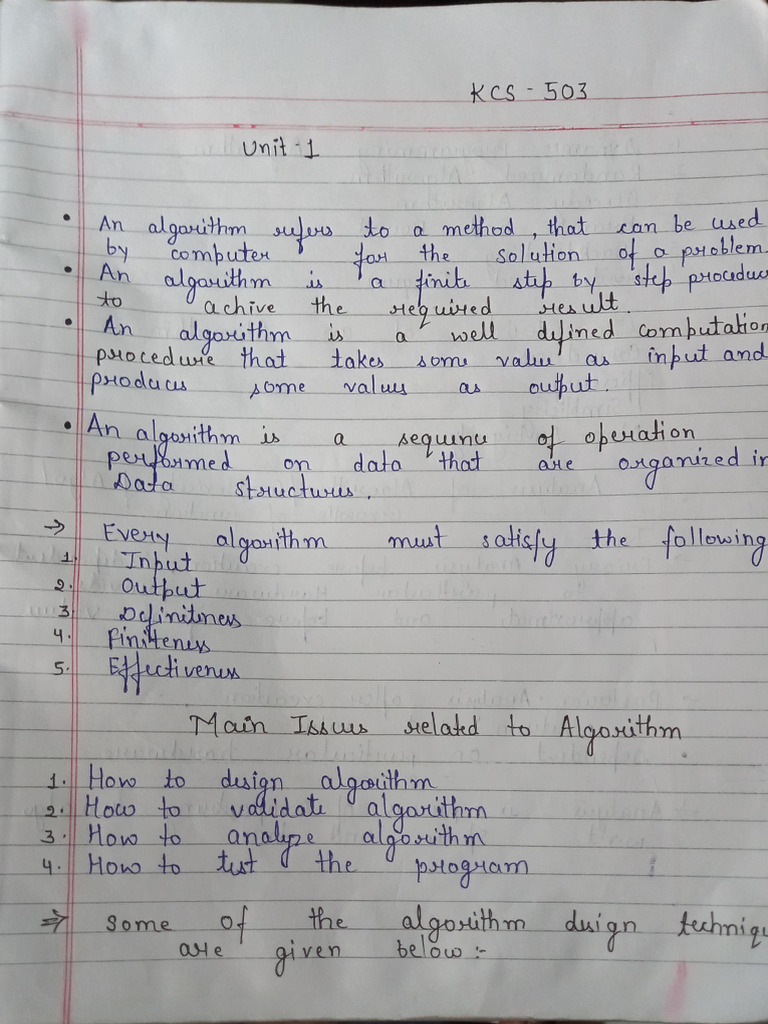 KCS - 503
Unit - 1
• An algorithm refers to a method, that can be used
by computer for the solution of a problem.
• An algorithm is a finite step by step procedur
to achive the required result.
• An algorithm is a well defined computation
procedure that takes some value as input and
produces some values as output.
• An algorithm is a sequence of operation
performed on data that are organized in
Data structures.
→ Every algorithm must satisfy the following
1. Input
2. Output
3. Definiteness
4. Finiteness
5. Effectiveness
Main Issues related to Algorithm
1. How to design algorithm
2. How to validate algorithm
3. How to analyze algorithm
4. How to test the program
⇒ some of the algorithm design techniqu
are given below :-